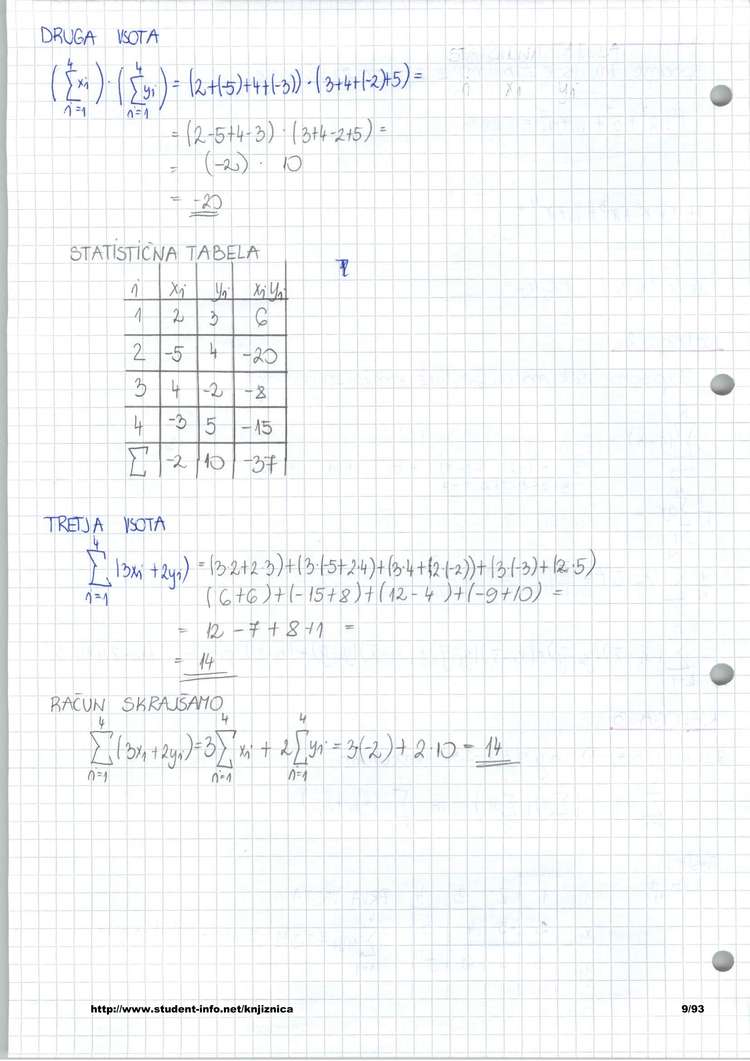 DRUGA VSOTA
(4∑i=1 xi) · (4∑i=1 yi) = (2+(-5)+4+(-3)) · (3+4+(-2)+5) =
= (2-5+4-3) · (3+4-2+5) =
= (-2) · 10
= -20
STATISTIČNA TABELA
i xi yi xiyi
1 2 3 6
2 -5 4 -20
3 4 -2 -8
4 -3 5 -15
∑ -2 10 -37
TRETJA VSOTA
4∑i=1 (3xi + 2yi) = (3·2+2·3)+(3·(-5+2·4)+(3·4+(2·(-2))+(3·(-3)+(2·5)
(6+6)+(-15+8)+(12-4)+(-9+10) =
= 12 - 7 + 8 + 1 =
= 14
RAČUN SKRAJŠAMO
4∑i=1 (3xi + 2yi) = 3 4∑i=1 xi + 2 4∑i=1 yi = 3·(-2) + 2·10 = 14
http://www.student-info.net/knjiznica 9/93